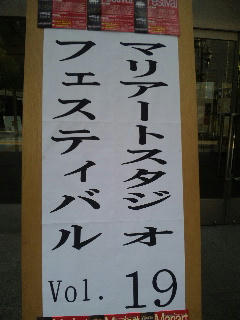 estival
Festival
マリアートスタジオ
フェスティバル
Vol. 19
Mariart